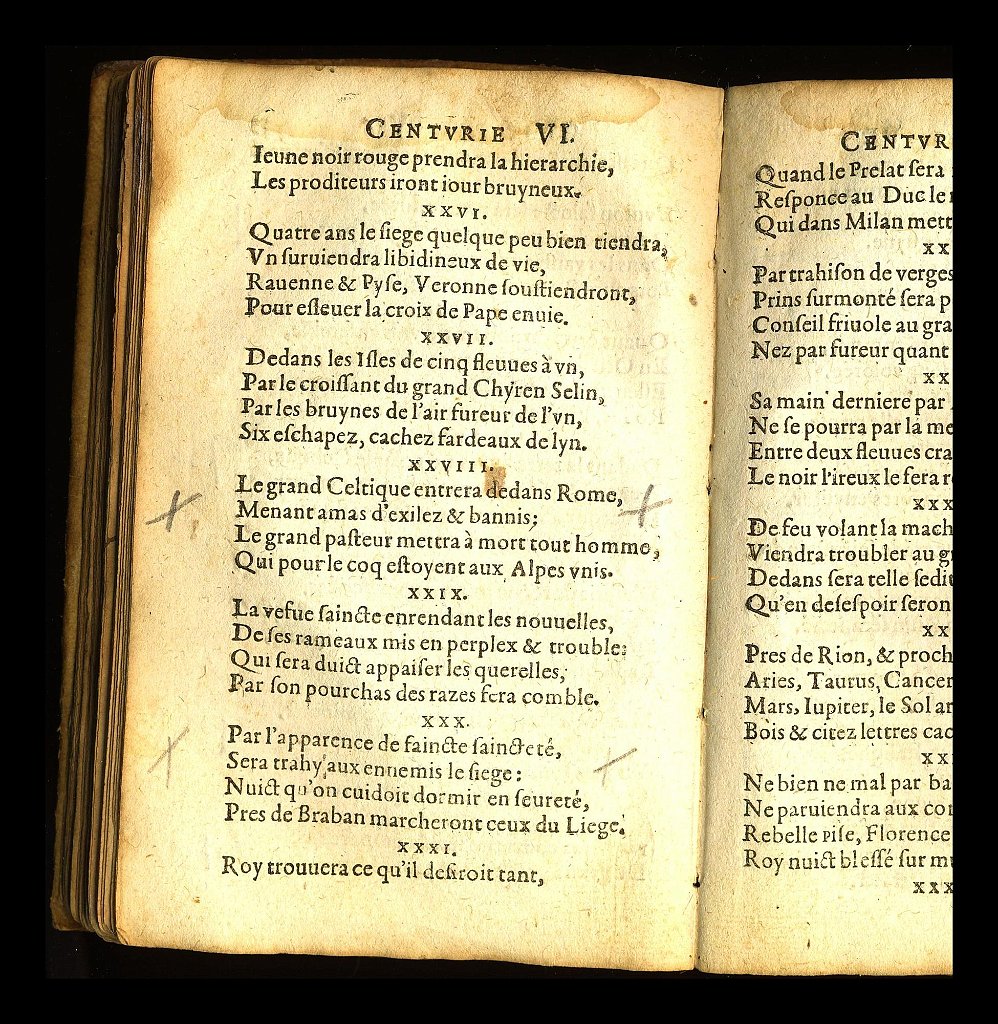 CENTVRIE VI.
Ieune noir rouge prendra la hierarchie,
Les proditeurs iront iour bruyneux.
XXVI.
Quatre ans le siege quelque peu bien tiendra,
Vn suruiendra libidineux de vie,
Rauenne & Pyse, Veronne soustiendront,
Pour esleuer la croix de Pape enuie.
XXVII.
Dedans les Isles de cinq fleuues à vn,
Par le croissant du grand Chyren Selin,
Par les bruynes de l'air fureur de l'vn,
Six eschapez, cachez fardeaux de lyn.
XXVIII.
Le grand Celtique entrera dedans Rome,
Menant amas d'exilez & bannis;
Le grand pasteur mettra à mort tout homme,
Qui pour le coq estoyent aux Alpes vnis.
XXIX.
La vefue saincte enrendant les nouuelles,
De ses rameaux mis en perplex & trouble:
Qui sera duict appaiser les querelles,
Par son pourchas des razes sera comble.
XXX.
Par l'apparence de faincte saincteté,
Sera trahy aux ennemis le siege:
Nuict qu'on cuidoit dormir en seureté,
Pres de Braban marcheront ceux du Liege.
XXXI.
Roy trouuera ce qu'il desiroit tant,
CENTVR
Quand le Prelat sera
Responce au Duc le
Qui dans Milan mett
XX
Par trahison de verges
Prins surmonté sera p
Conseil friuole au gra
Nez par fureur quant
XX
Sa main derniere par
Ne se pourra par la me
Entre deux fleuues cra
Le noir l'ireux le fera r
XXX
De feu volant la mach
Viendra troubler au g
Dedans sera telle sedi
Qu'en desespoir seron
XX
Pres de Rion, & proch
Aries, Taurus, Cancer
Mars, Iupiter, le Sol ar
Bois & citez lettres cac
XX
Ne bien ne mal par ba
Ne paruiendra aux co
Rebelle Pise, Florence
Roy nuict blessé sur m
XXX